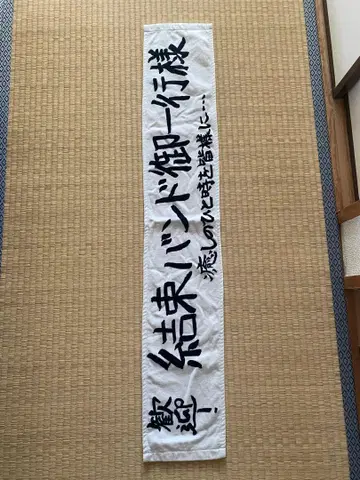 歓迎!
結束バンド御一行様
癒しのひと時を皆様に…